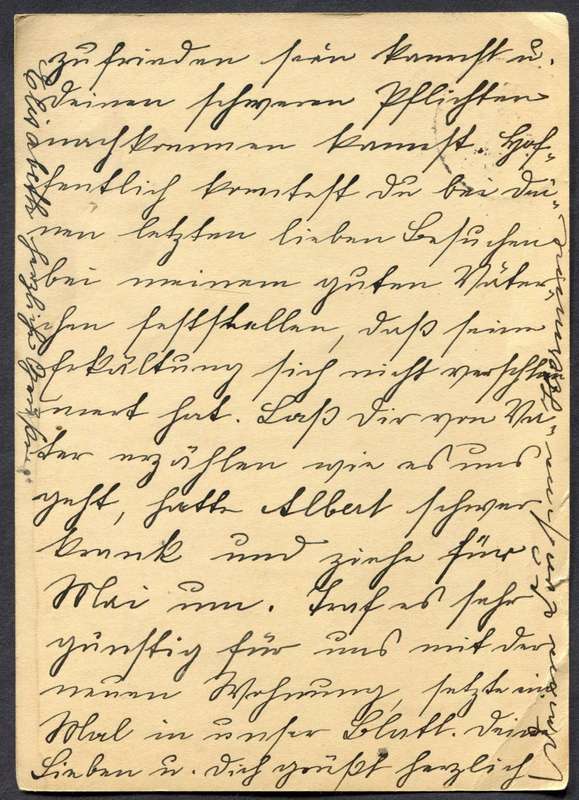 zufrieden sein kannst u.
Deinen schweren Pflichten
nachkommen kannst. Hof-
fentlich konntest Du bei Dei-
nen letzten lieben Besuchen
bei meinem guten Väter-
chen feststellen, daß seine
Erkältung sich nicht verschlim-
mert hat. Laß Dir von Va-
ter erzählen wie es uns
geht, hatte Albert schwer
krank und ziehe für
Mai um. Traf es sehr
günstig für uns mit der
neuen Wohnung, setzte ein
Mal in unser Blatt. Deine
Lieben u. Dich grüßt herzlich
Elisabeth herzliche Grüße